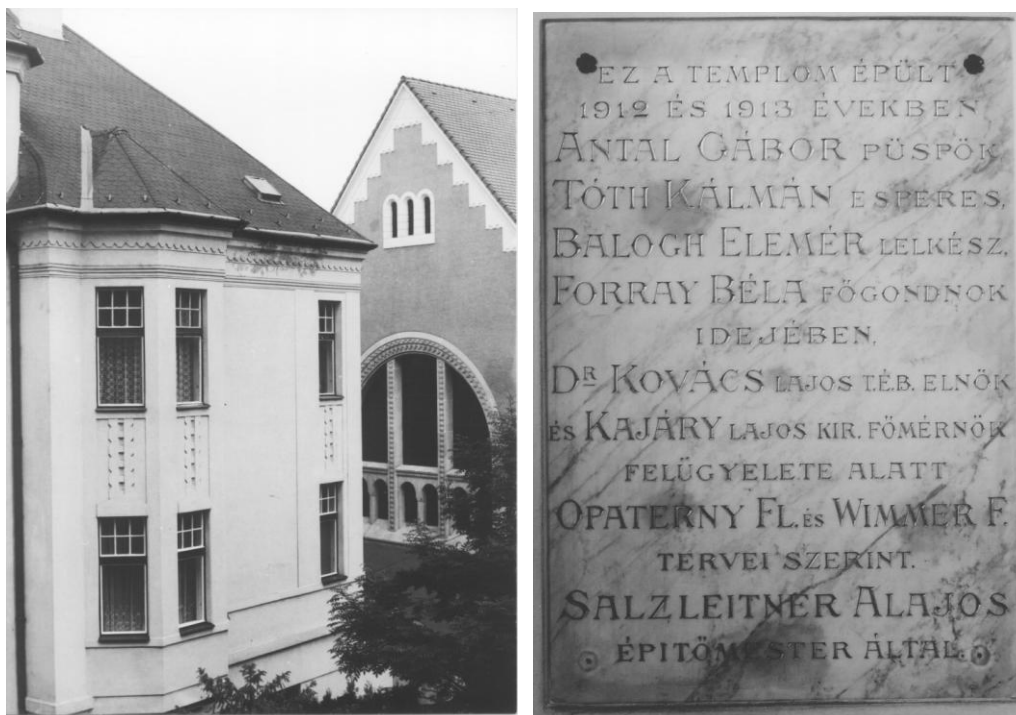 EZ A TEMPLOM ÉPÜLT
1912 ÉS 1913 ÉVEKBEN
ANTAL GÁBOR PÜSPÖK
TÓTH KÁLMÁN ESPERES,
BALOGH ELEMÉR LELKÉSZ,
FORRAY BÉLA FŐGONDNOK
IDEJÉBEN,
DR KOVÁCS LAJOS T.ÉB. ELNÖK
ÉS KAJÁRY LAJOS KIR. FŐMÉRNÖK
FELÜGYELETE ALATT
OPATERNY FL. ÉS WIMMER F.
TERVEI SZERINT.
SALZLEITNER ALAJOS
ÉPITŐMESTER ÁLTAL.